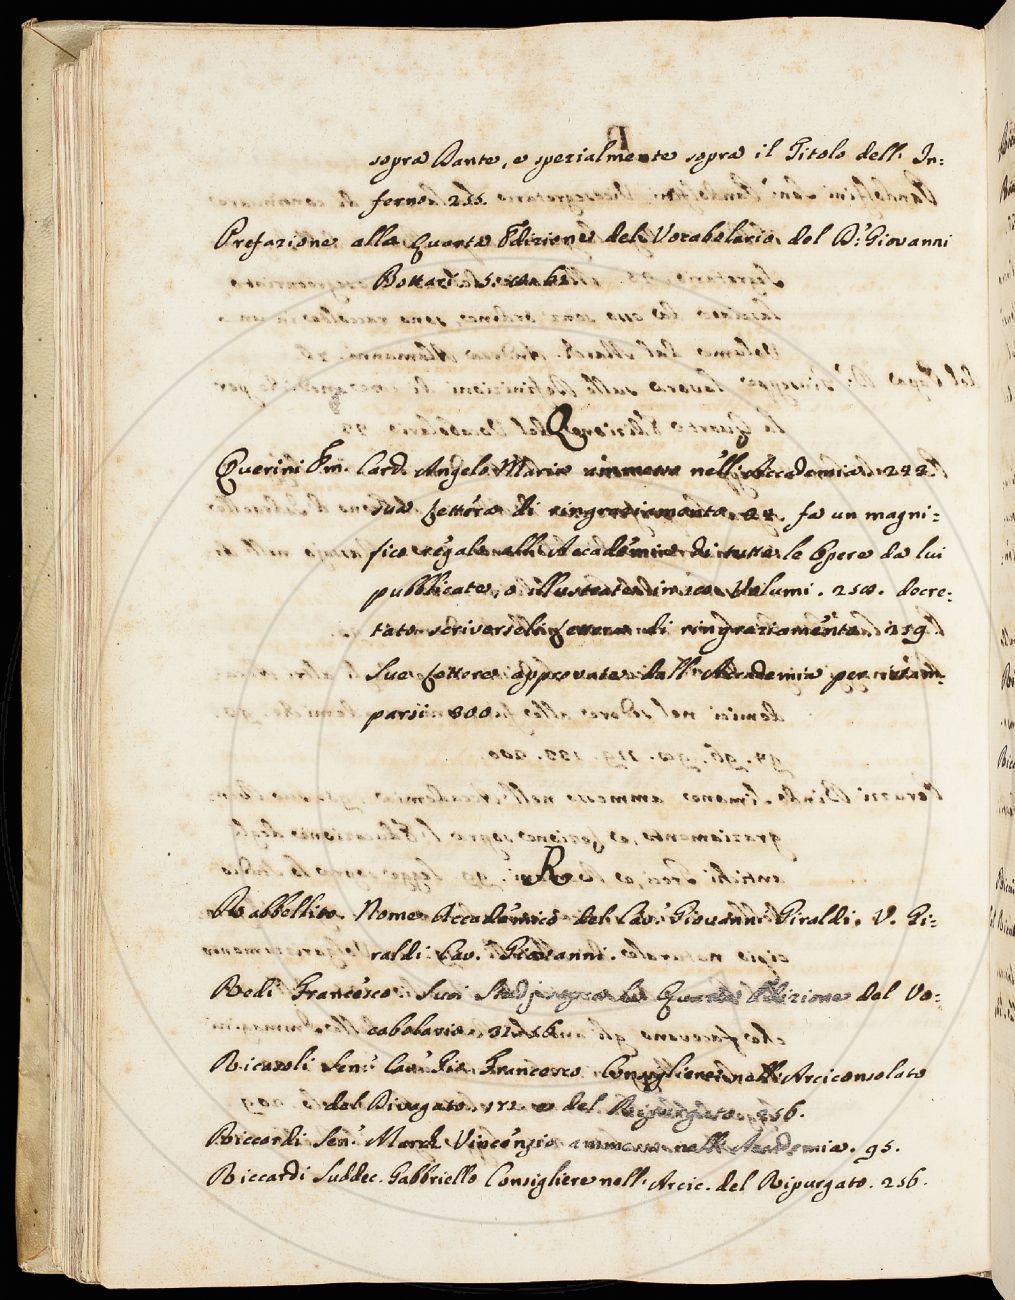 sopra Dante, e spezialmente sopra il Titolo dell' In=
ferno. 255.
Prefazione alla Quarta Edizione del Vocabolario del D.r Giovanni
Bottari
Q
Querini Em. Card. Angelo Maria ammesso nell' Accademia. 244.
sua Lettera di ringraziamento. fa un magni=
fico regalo all' Accademia di tutte le Opere da lui
pubblicate, o illustrate in Volumi. 250. decre=
tato scriverseli Lettera di ringraziamento. 259.
Sue Lettere approvate dall' Accademia per ristam=
parsi. 300.
R
Rabbellito. Nome Accademico del Cav. Giovanni Giraldi. V. Gi=
raldi Cav. Giovanni.
Redi Francesco Suoi Studj sopra la Quarta Edizione del Vo=
cabolario.
Ricasoli Sen. Cav. Gio. Francesco Consigliere nell' Arciconsolato
del Divagato. 172. e del Ripurgato. 256.
Riccardi Sen. March. Vincenzio ammesso nell' Accademia. 95.
Riccardi Suddec. Gabbriello Consigliere nell' Arcic. del Ripurgato. 256.